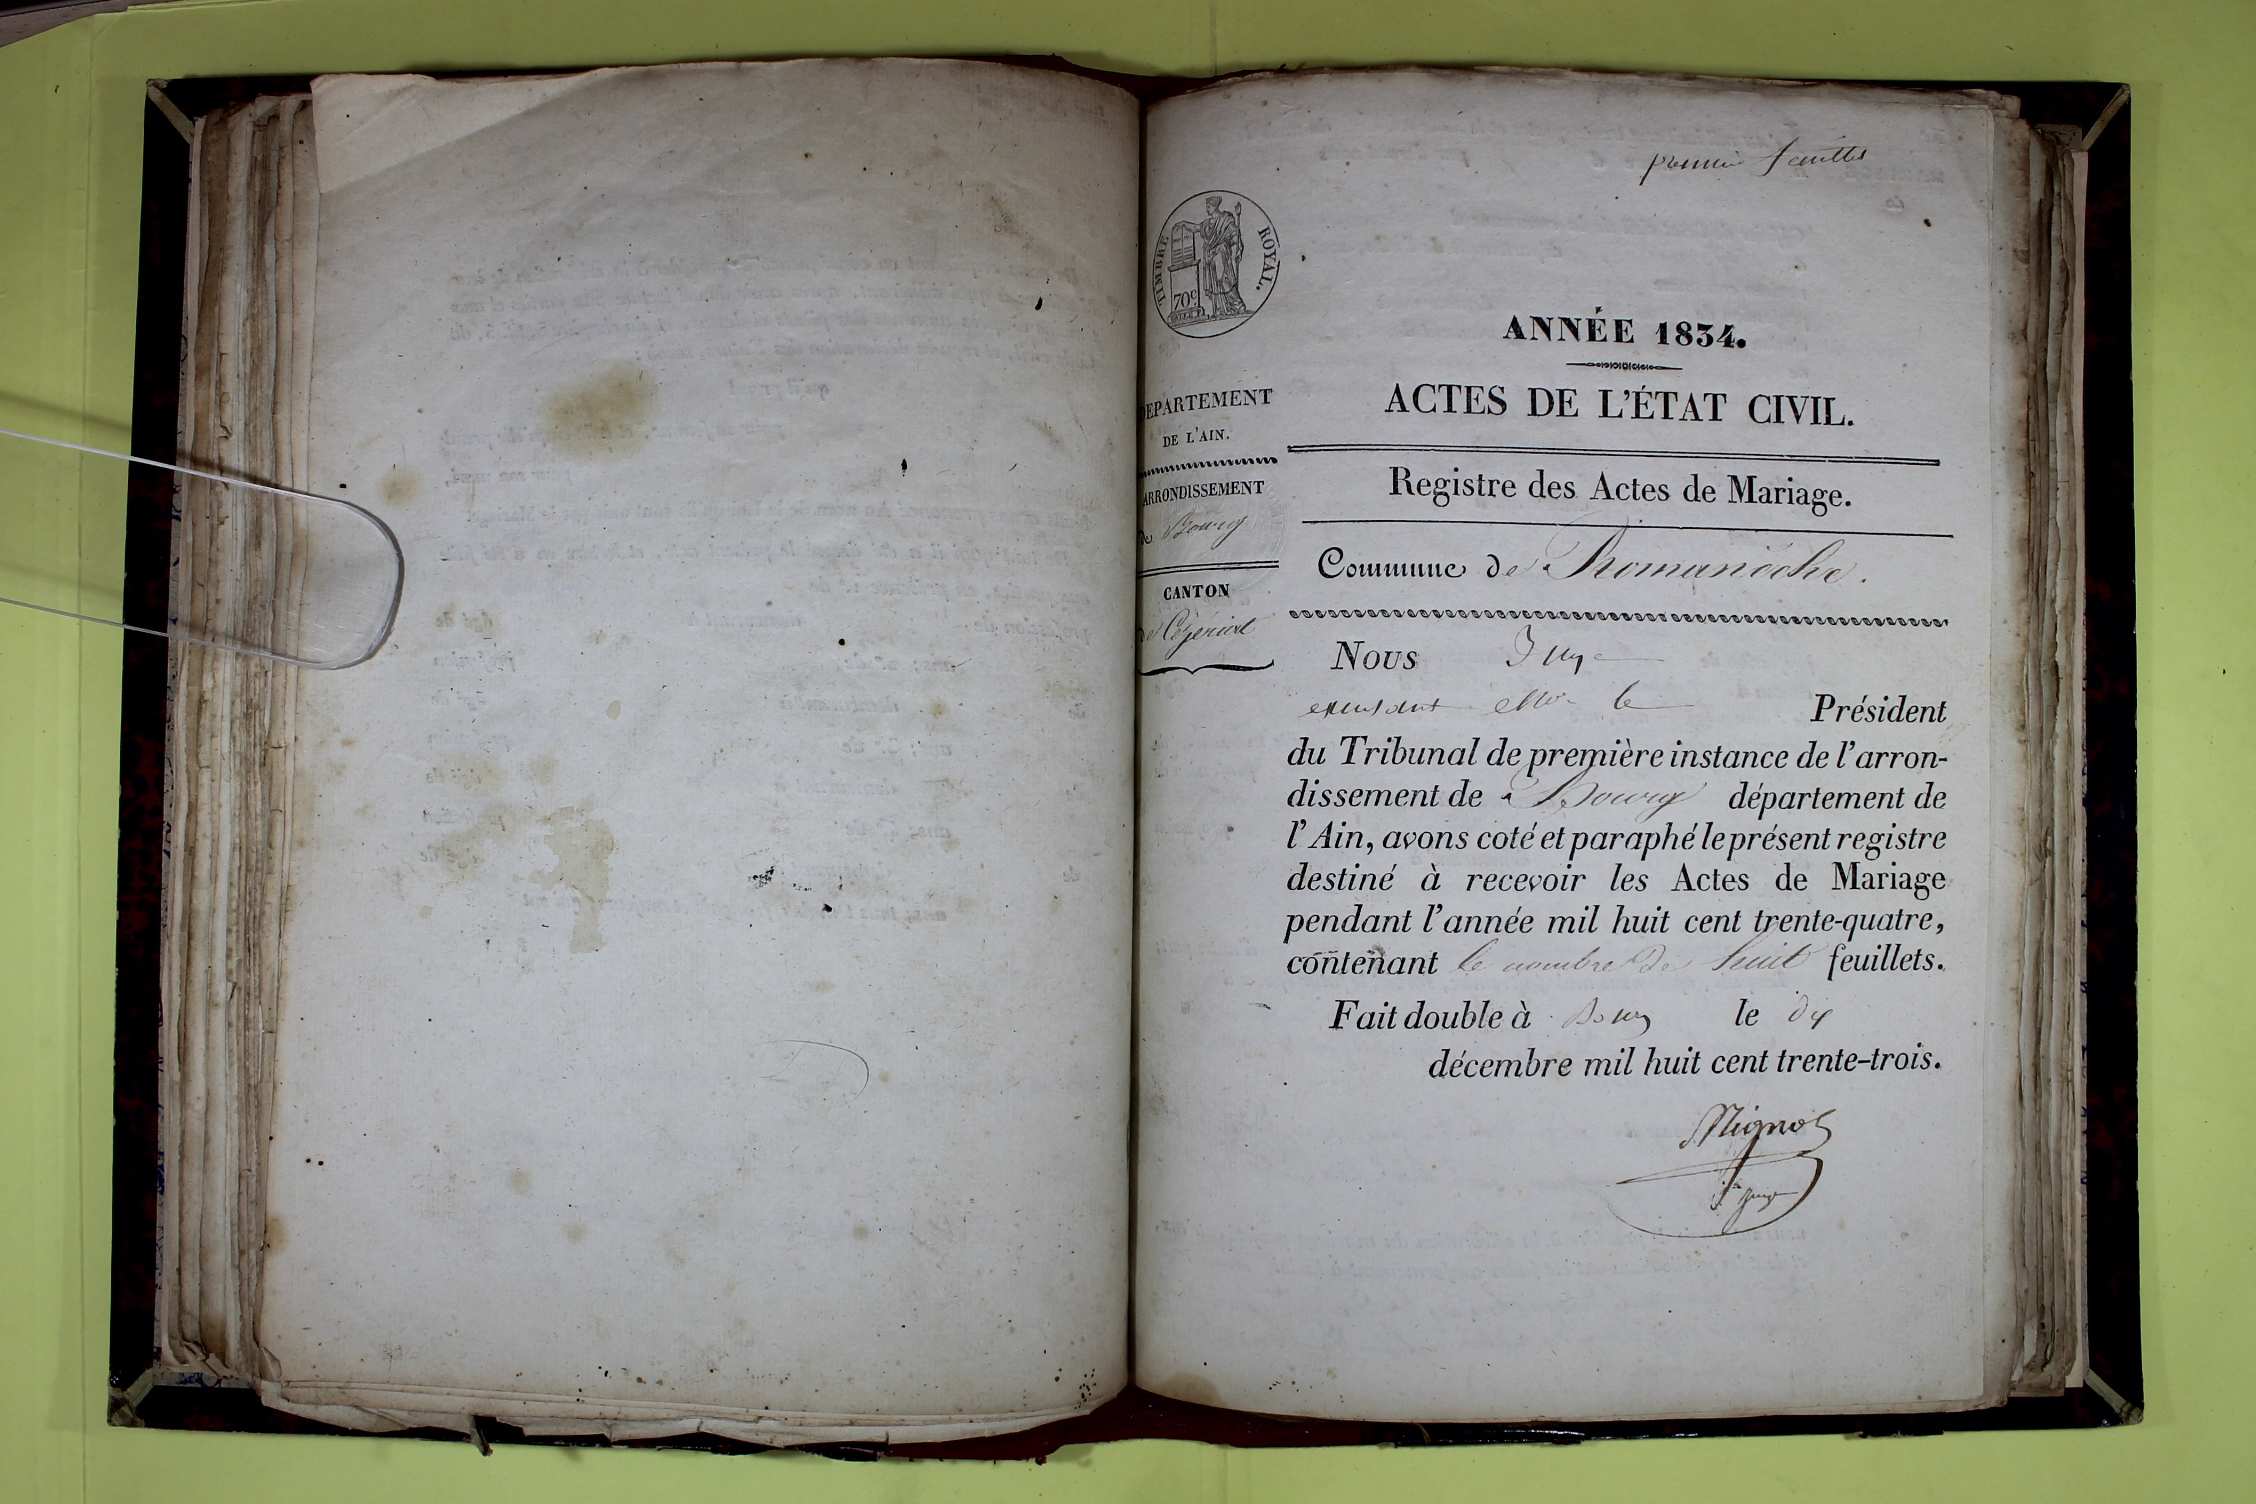 premier feuillet
TIMBRE ROYAL.
70c
ANNÉE 1834.
ACTES DE L'ÉTAT CIVIL.
DEPARTEMENT
DE L'AIN.
ARRONDISSEMENT
de Bourg
CANTON
de Ceyzeriat
Registre des Actes de Mariage.
Commune de Romanèche.
Nous Juge
le Président
du Tribunal de première instance de l'arron-
dissement de Bourg département de
l'Ain, avons coté et paraphé le présent registre
destiné à recevoir les Actes de Mariage
pendant l'année mil huit cent trente-quatre,
contenant le nombre de huit feuillets.
Fait double à Bourg le dix
décembre mil huit cent trente-trois.
Mignot
juge